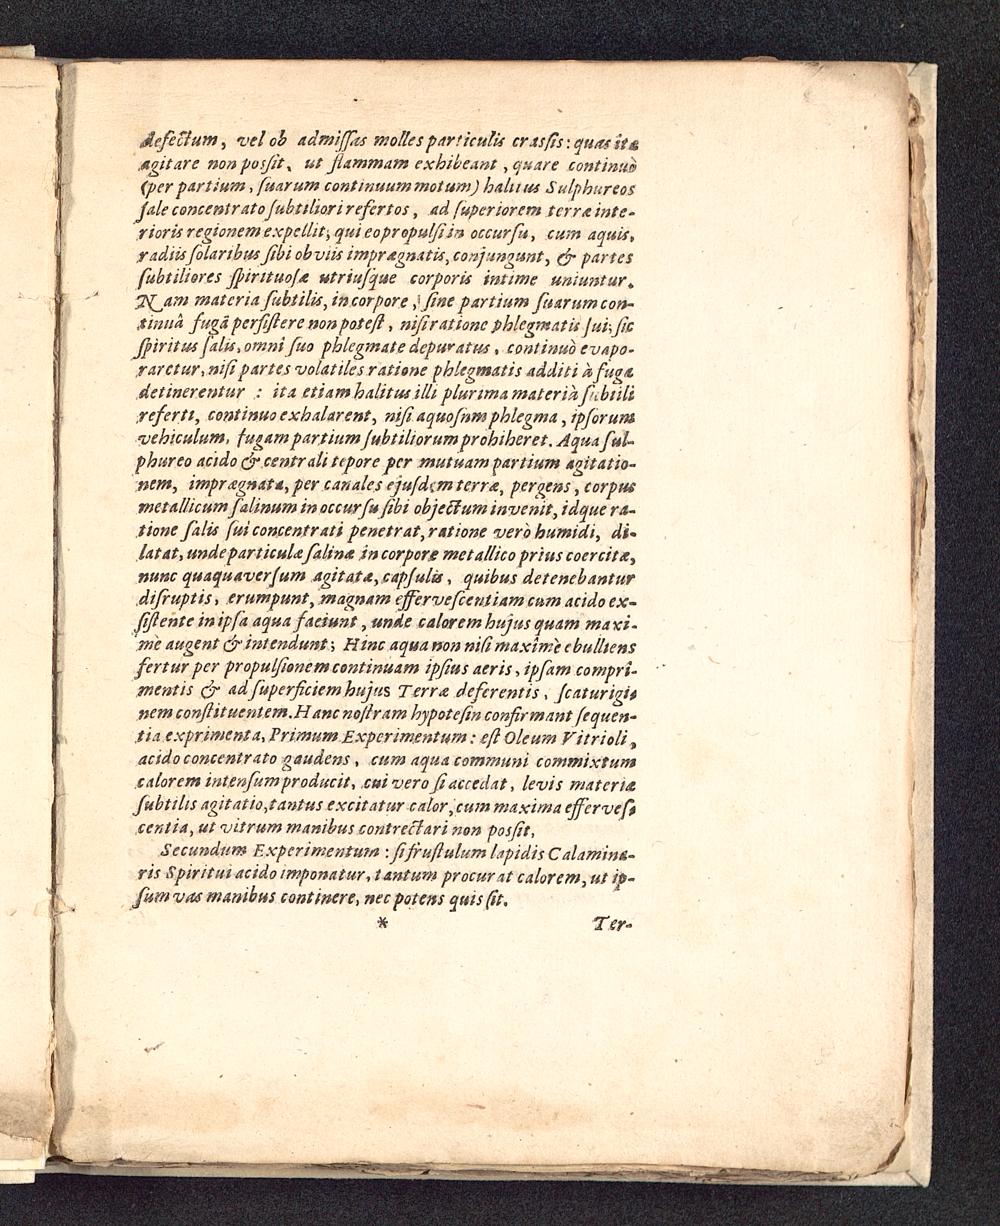 defectum, vel ob admiſſas molles particulis craſſis: quas ita
agitare non poſſit, ut flammam exhibeant, quare continuò
(per partium, ſuarum continuum motum) halitus Sulphureos
ſale concentrato ſubtiliori refertos, ad ſuperiorem terræ inte-
rioris regionem expellit; qui eo propulſi in occurſu, cum aquis,
radiis ſolaribus ſibi obviis imprægnatis, conjungunt, & partes
ſubtiliores ſpirituoſæ utriuſque corporis intime uniuntur.
Nam materia ſubtilis, in corpore, ſine partium ſuarum con-
tinuâ fugâ perſiſtere non poteſt, niſi ratione phlegmatis ſui; ſic
ſpiritus ſalis, omni ſuo phlegmate depuratus, continuò evapo-
raretur, niſi partes volatiles ratione phlegmatis additi à fuga
detinerentur : ita etiam halitus illi plurima materià ſubtili
referti, continuo exhalarent, niſi aquoſnm phlegma, ipſorum
vehiculum, fugam partium ſubtiliorum prohiheret. Aqua ſul-
phureo acido & centrali tepore per mutuam partium agitatio-
nem, imprægnata, per canales ejuſdem terræ, pergens, corpus
metallicum ſalinum in occurſu ſibi objectum invenit, idque ra-
tione ſalis ſui concentrati penetrat, ratione verò humidi, di-
latat, unde particulæ ſalinæ in corpore metallico prius coercitæ,
nunc quaquaverſum agitatæ, capſulis, quibus detenebantur
diſruptis, erumpunt, magnam efferveſcentiam cum acido ex-
ſiſtente in ipſa aqua faciunt, unde calorem hujus quam maxi-
mè augent & intendunt; Hinc aqua non niſi maximè ebulliens
fertur per propulſionem continuam ipſius aeris, ipſam compri-
mentis & ad ſuperficiem hujus Terræ deferentis, ſcaturigi-
nem conſtituentem. Hanc noſtram hypoteſin confirmant ſequen-
tia exprimenta, Primum Experimentum: eſt Oleum Vitrioli,
acido concentrato gaudens, cum aqua communi commixtum
calorem intenſum producit, cui vero ſi accedat, levis materiæ
ſubtilis agitatio, tantus excitatur calor, cum maxima efferveſ-
centia, ut vitrum manibus contrectari non poſſit,
Secundum Experimentum: ſi fruſtulum lapidis Calamina-
ris Spiritui acido imponatur, tantum procurat calorem, ut ip-
ſum vas manibus continere, nec potens quis ſit.
* Ter-